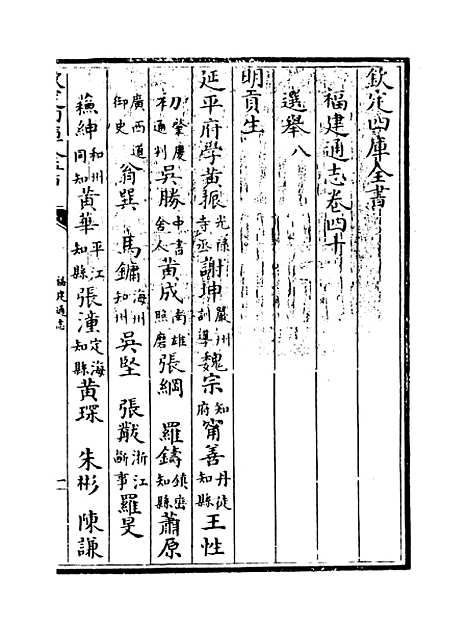 欽定四庫全書
福建通志卷四十
選舉八
明貢生
延平府學黄振光禄寺丞謝坤嚴州訓導魏宗知府甯善丹徒知縣王性
肇慶通判吳勝中書舍人黄成南雄照磨張綱　羅鑄知縣蕭原
廣西道御史翁巽　馬鏞海州知州吳堅　張黻浙江僉事羅旻
蘇紳和州同知黄華平江知縣張潼定海知縣黄琛　朱彬　陳謙
福建通志
一